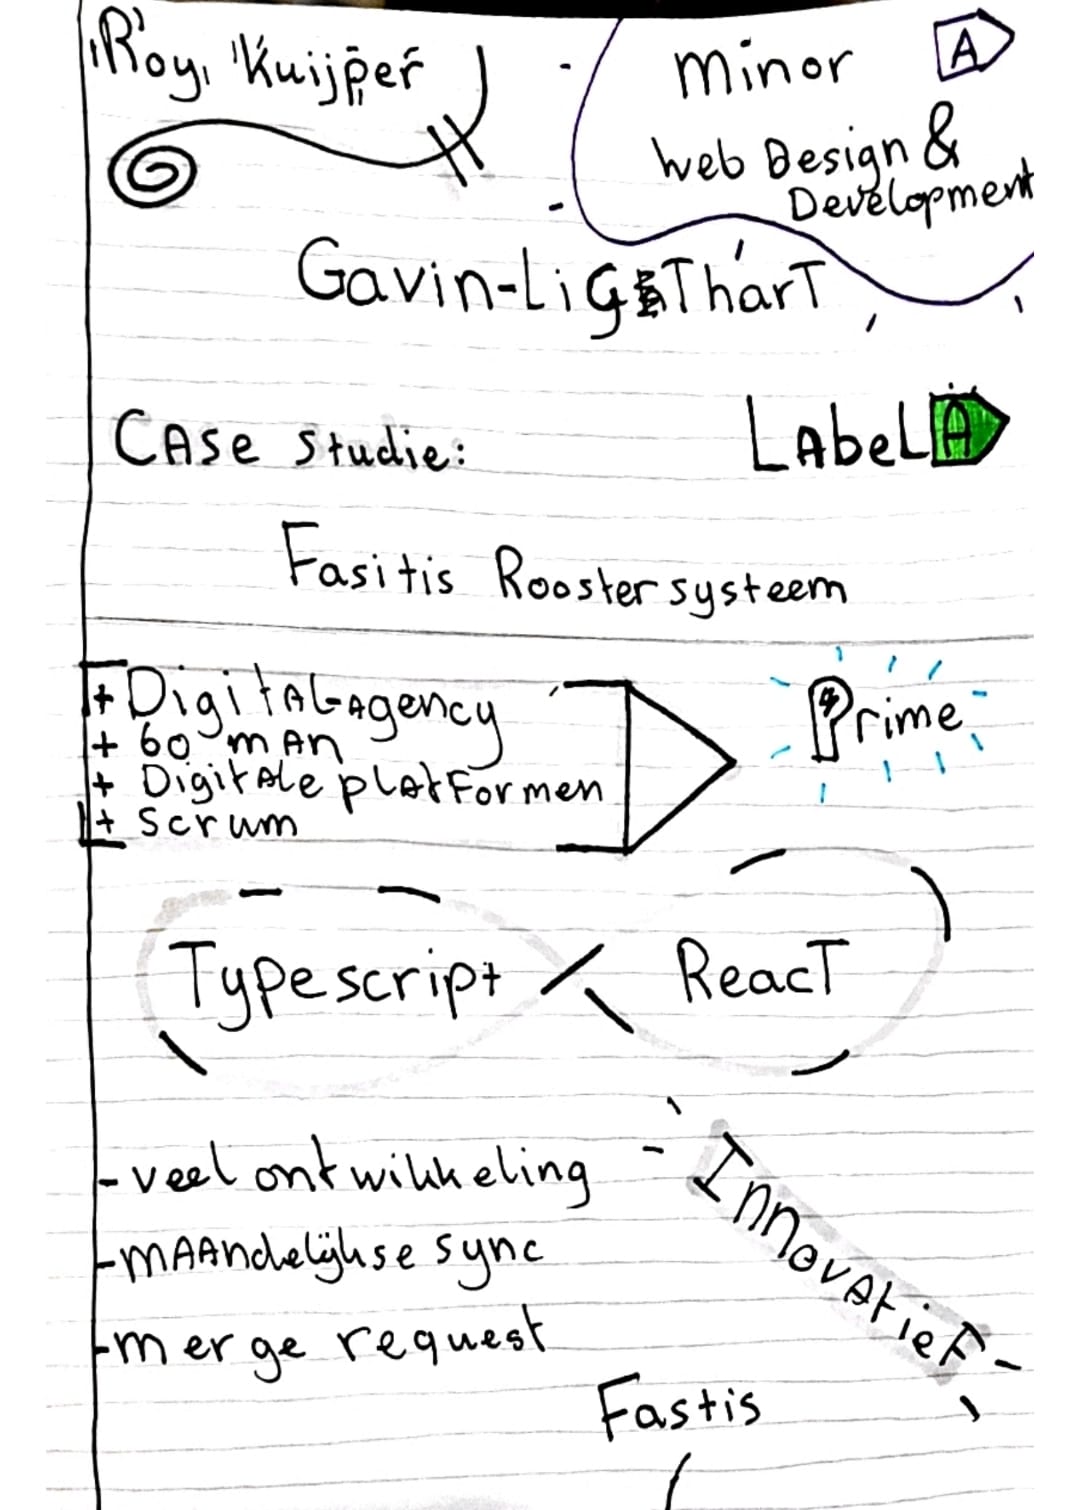 Roy Kuijper
Minor A
Web Design &
Development
Gavin-LigtTharT
Case Studie:
Label A
Fasitis Roostersysteem
+ Digital-agency
+ 60 man
+ Digitale platformen
+ Scrum
Prime
Typescript
ReacT
- veel ontwikkeling
- maandelijkse sync
- merge request
Innovatief
Fastis